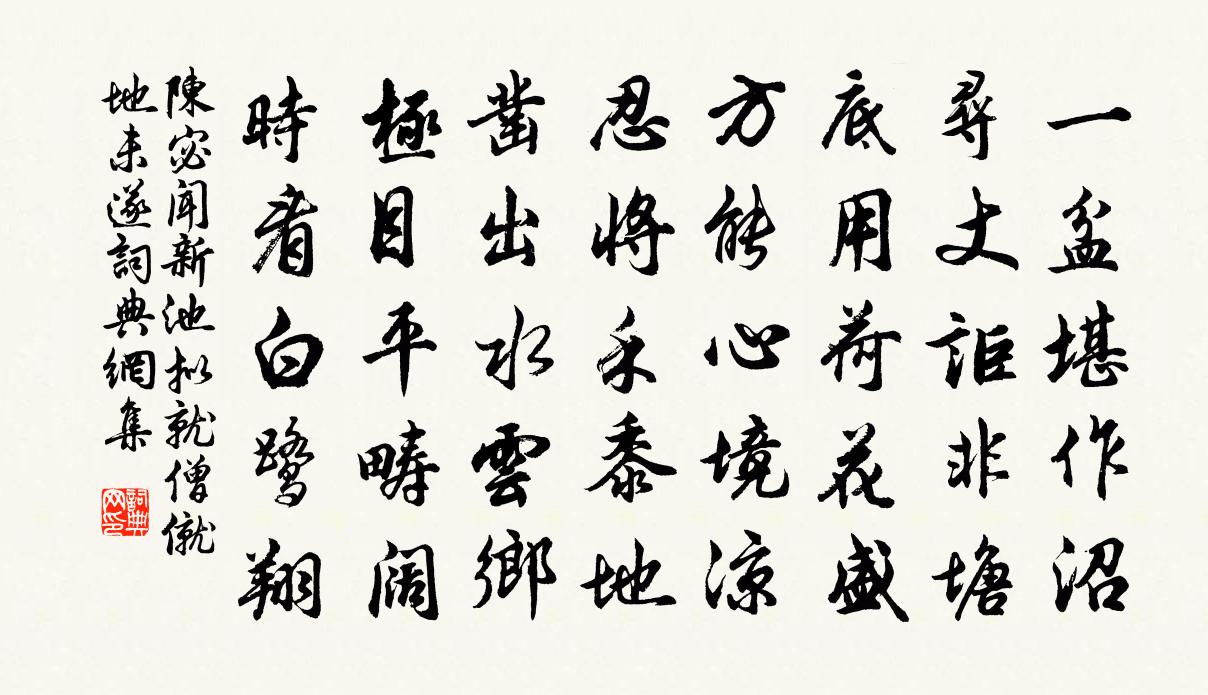 一盆堪作沼
尋丈詎非塘
底用荷花盛
方能心境涼
忍將禾黍地
凿出水雲鄉
極目平疇阔
時看白鹭翔
陳宓聞新池拟就僧僦
地未遂詞典網集
詞典
网印